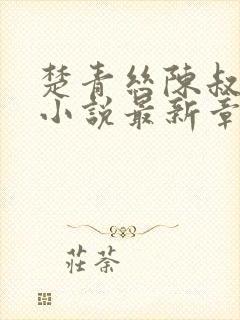 楚青絲陳叔
小說最新章
莊荼